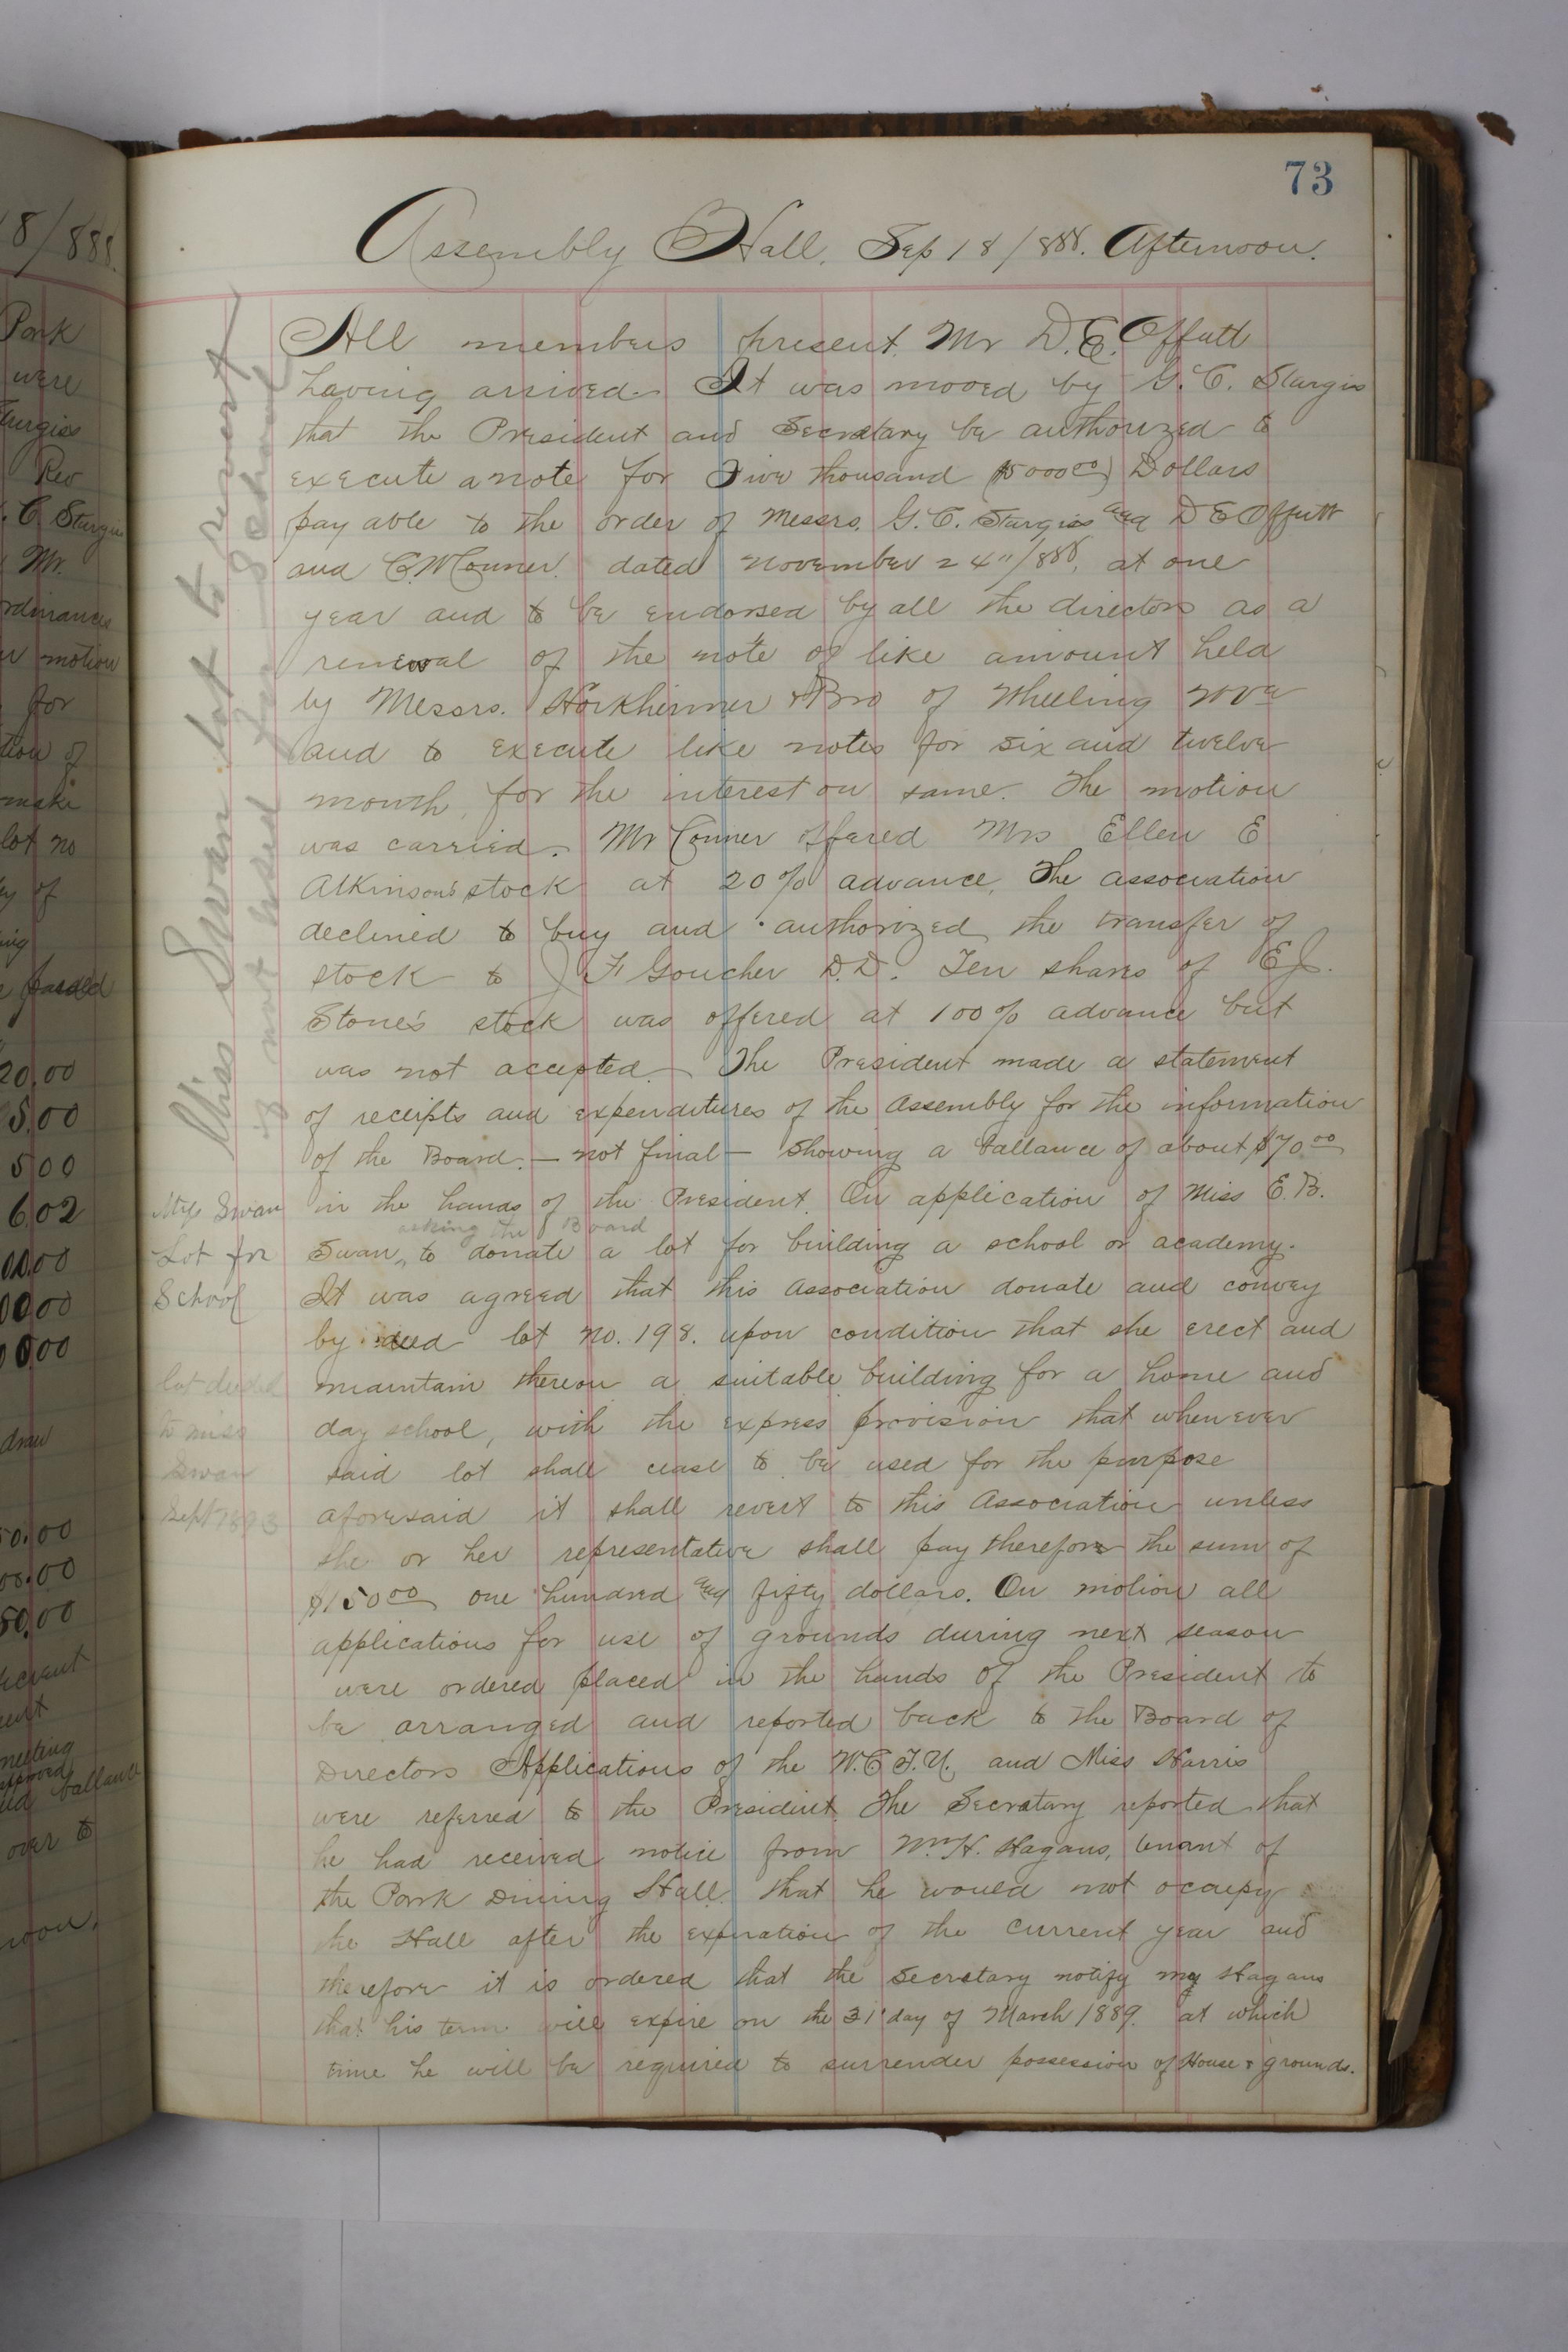 8/888.
Park
were
Sturgiss
Rev
. C Sturgiss
Mr.
ordinances
motion
for
tion of
lot no
of
ing
passed
20.00
5.00
500
602
00.00
0000
0000
draw
50.00
00.00
50.00
meeting
approved
ballance
over to
noon.
73
Assembly Hall, Sep 18/888. Afternoon.
All members present. Mr D. E. Offutt
having arrived. It was moved by G. C. Sturgis
that the President and Secretary be authorized to
execute a note for Five thousand ($5000 00) Dollars
payable to the order of Messrs. G. C. Sturgiss and D E Offutt
and C. W Conner. dated November 24"/888, at one
year and to be endorsed by all the directors as a
renewal of the note of like amount held
by Messrs. Horkheimer & Bro of Wheeling W Va
and to execute like notes for six and twelve
month, for the interest on same. The motion
was carried. Mr Conner offered Mrs Ellen E
Atkinson's stock at 20% advance, The association
declined to buy and authorized the transfer of
stock to J F Goucher D.D. Ten shares of E J.
Stone's stock was offered at 100% advance but
was not accepted. The President made a statement
of receipts and expenditures of the Assembly for the information
of the Board. — not final — Showing a ballance of about $70 00
in the hands of the President. On application of Miss E. B.
asking the Board
Swan, to donate a lot for building a school or academy.
It was agreed that this Association donate and convey
by deed lot no. 198. upon condition that she erect and
maintain thereon a suitable building for a home and
day school, with the express provision that whenever
said lot shall cease to be used for the purpose
aforesaid it shall revert to this Association unless
she or her representative shall pay therefore the sum of
$150 00 one hundred and fifty dollars. On motion all
applications for use of grounds during next season
were ordered placed in the hands of the President to
be arranged and reported back to the Board of
Directors Applications of the W. C. T. U. and Miss Harris
were referred to the President. The Secratary reported that
he had received notice from Wm H. Hagans, tenant of
the Park Dining Hall. that he would not ocaupy
the Hall after the expiration of the current year and
therefore it is ordered that the Secretary notify mr Hagans
that his term will expire on the 31' day of March 1889. at which
time he will be required to surrender possession of House & grounds.
Miss Swan lot to revert
if not used for School
Miss Swan
Lot for
School
lot deeded
to miss
Swan
Sept 1893